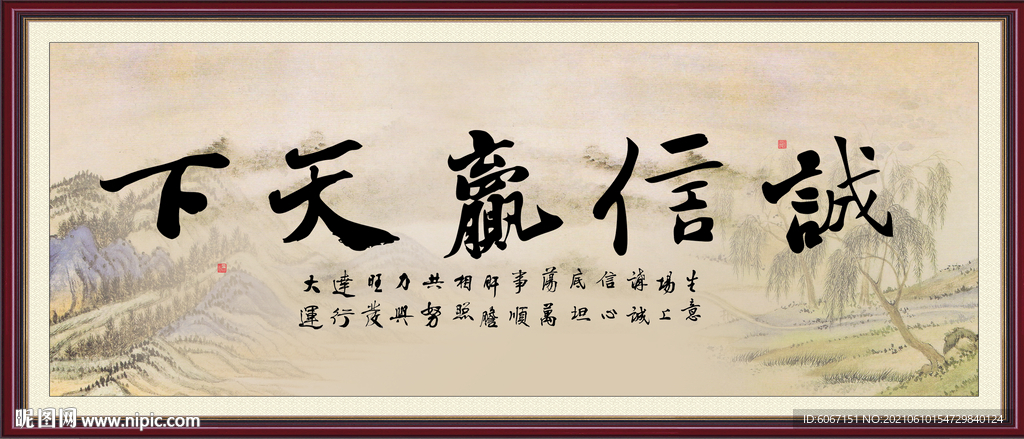 誠信贏天下
生意
場上
講誠
信心
底坦
蕩萬
事順
肝膽
相照
共努
力興
旺發
達行
大運
昵图网 www.nipic.com
ID:6067151 NO:20210610154729840124